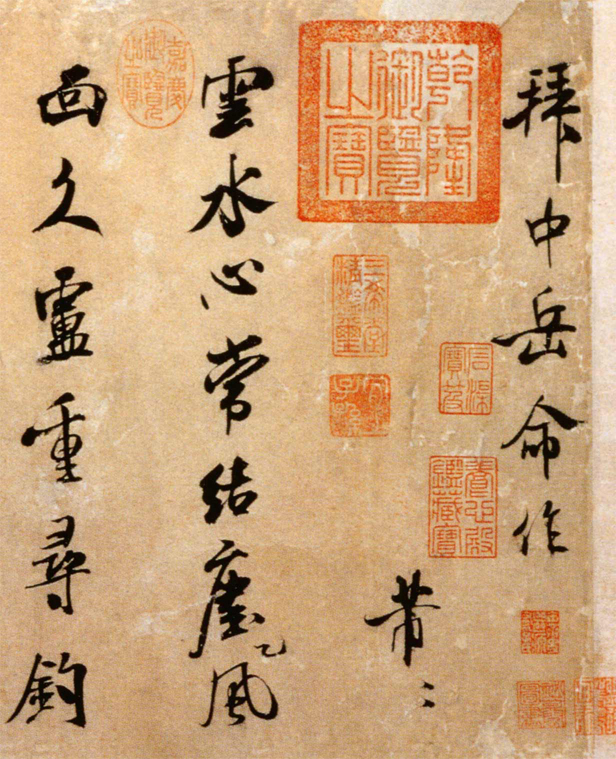 拜中岳命作
石渠寶笈
養心殿鑑藏寶
芾〻
乾隆御覽之寶
三希堂精鑑璽
宜子孫
雲水心常結塵風
嘉慶御覽之寶
面久盧重尋釣